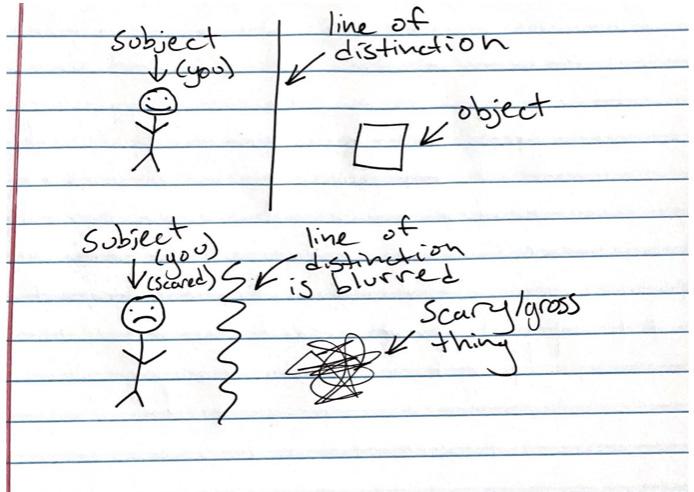 subject
(you)
line of
distinction
object
subject
(you)
(scared)
line of
distinction
is blurred
scary/gross
thing